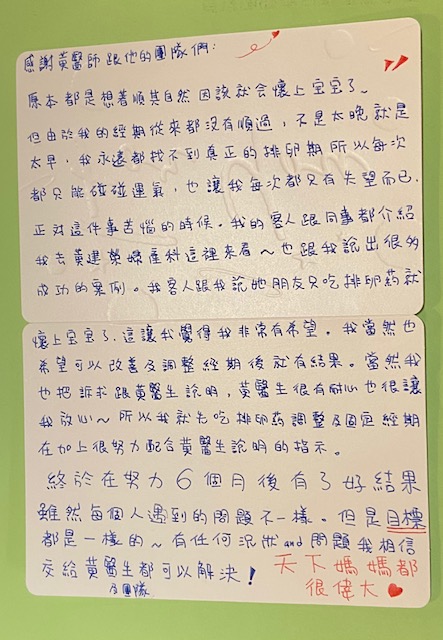 感謝黃醫師跟他的團隊們：
原本都是想著順其自然 因該就會懷上宝宝了～
但由於我的經期從來都沒有順過，不是太晚就是
太早，我永遠都找不到真正的排卵期所以每次
都只能碰碰運氣，也讓我每次都只有失望而已.
正對這件事苦惱的時候。我的客人跟同事都介紹
我去黃建榮婦產科這裡來看～也跟我說出很多
成功的案例。我客人跟我說她朋友只吃排卵药就
懷上宝宝了.這讓我覺得我非常有希望。我當然也
希望可以改善及調整經期後就有結果。當然我
也把訴求跟黃醫生說明，黃醫生很有耐心也很讓
我放心～所以我就先吃排卵药調整及固定經期
在加上很努力配合黃醫生說明的指示。
終於在努力6個月後有了好結果
雖然每個人遇到的問題不一樣。但是目標
都是一樣的～有任何況狀and問題我相信
交給黃醫生及團隊都可以解決！
天下媽媽都
很偉大